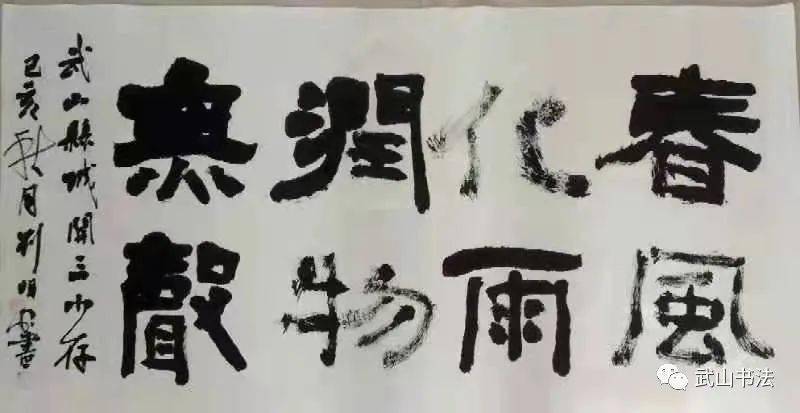 春風
化雨
潤物
無聲
武山縣城關三小存
己亥秋月
書
武山书法